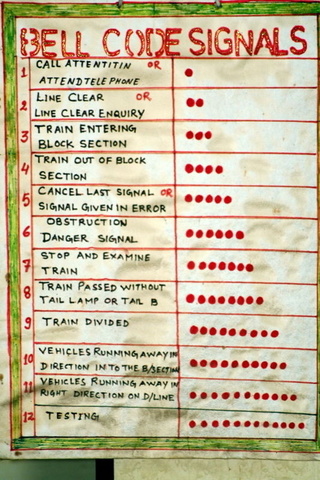 BELL CODE SIGNALS
1 CALL ATTENTITIN OR
ATTEND TELEPHONE
2 LINE CLEAR OR
LINE CLEAR ENQUIRY
3 TRAIN ENTERING
BLOCK SECTION
4 TRAIN OUT OF BLOCK
SECTION
5 CANCEL LAST SIGNAL OR
SIGNAL GIVEN IN ERROR
6 OBSTRUCTION
DANGER SIGNAL
7 STOP AND EXAMINE
TRAIN
8 TRAIN PASSED WITHOUT
TAIL LAMP OR TAIL B
9 TRAIN DIVIDED
10 VEHICLES RUNNING AWAY IN
DIRECTION IN TO THE B/SECTION
11 VEHICLES RUNNING AWAY IN
RIGHT DIRECTION ON D/LINE
12 TESTING